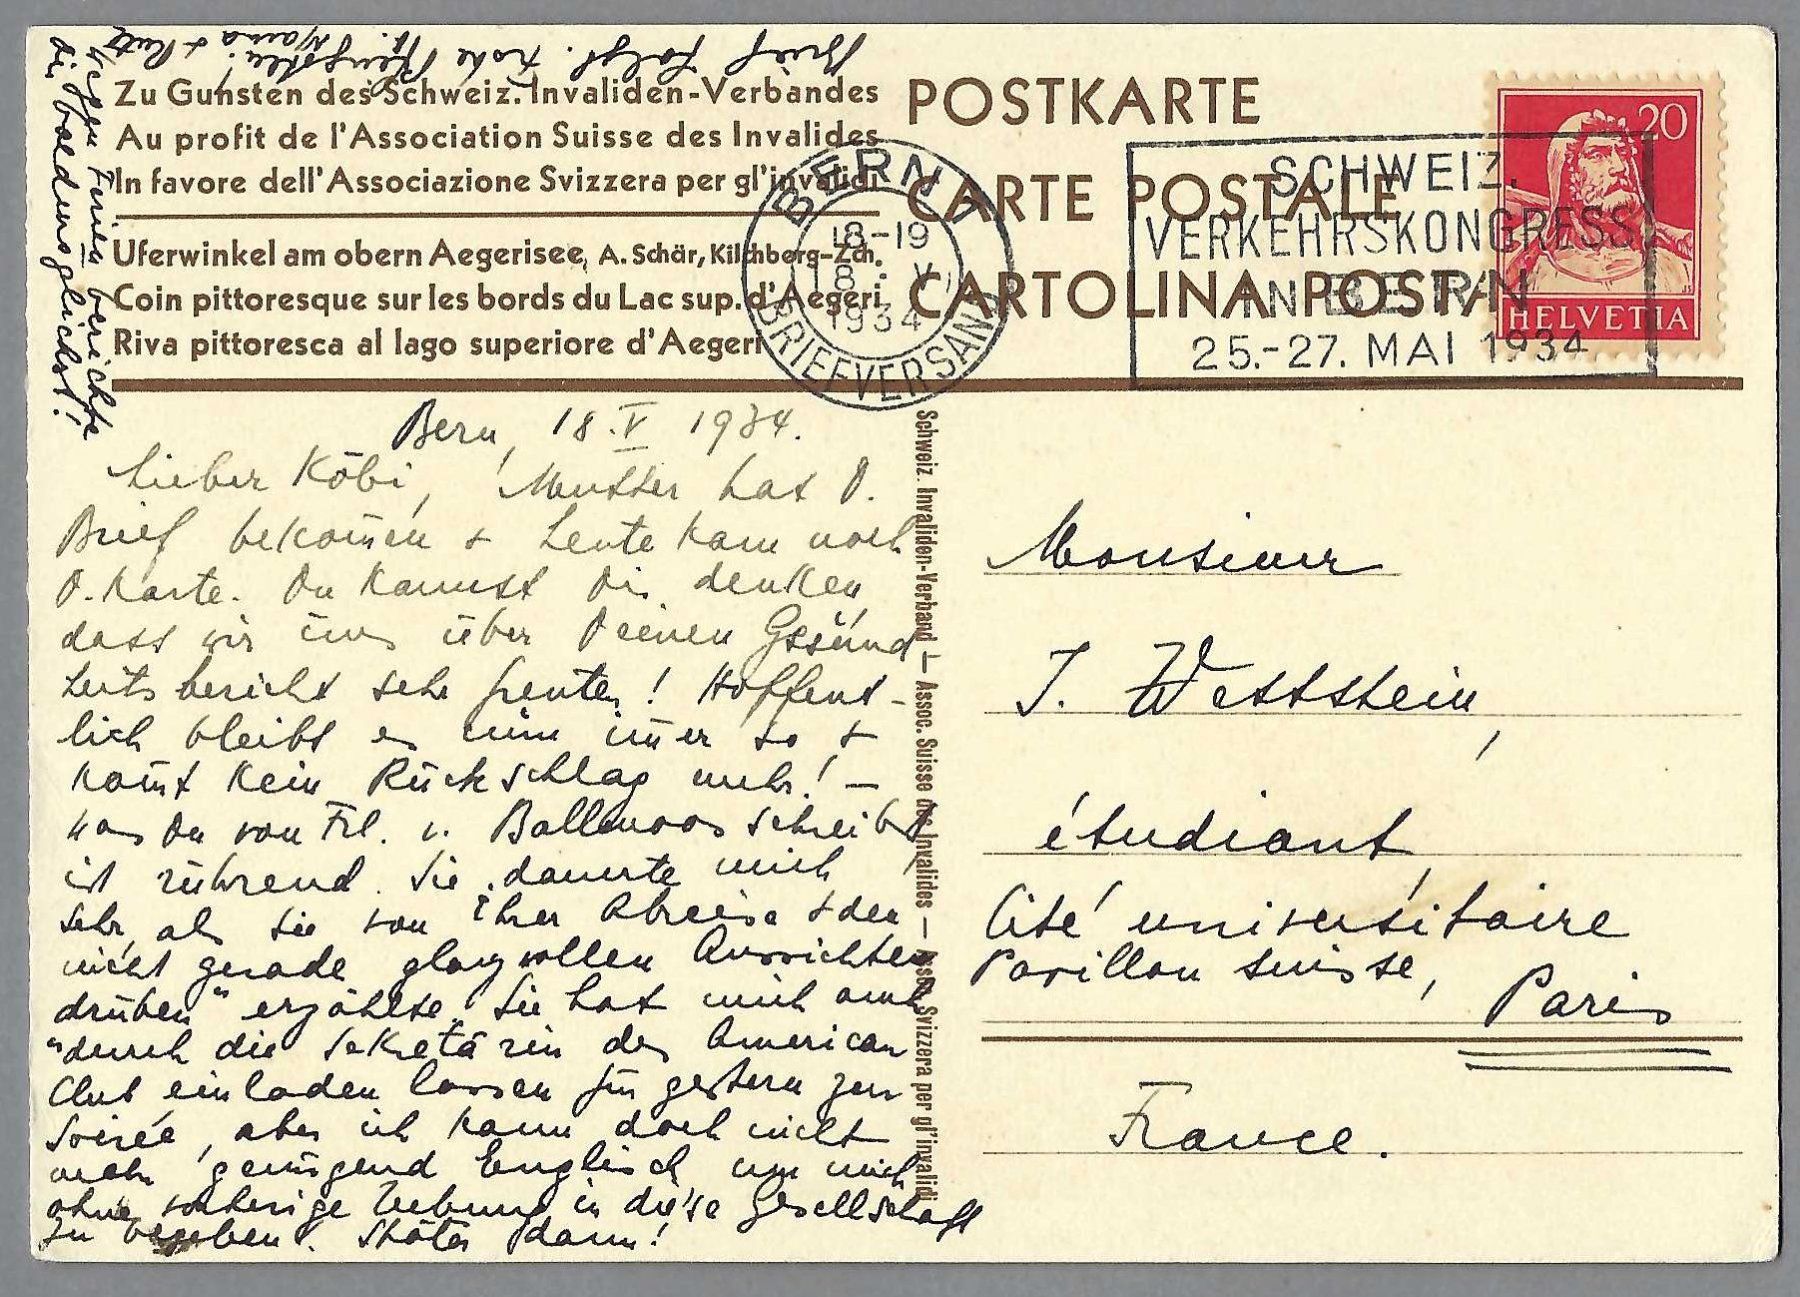 Brief folgt. Frohe Pfingsten!
Mama + Ruth
Wegen Ferien berichte
Dir baldmöglichst!
Zu Gunsten des Schweiz. Invaliden-Verbandes
Au profit de l'Association Suisse des Invalides
In favore dell'Associazione Svizzera per gl'invalidi
Uferwinkel am obern Aegerisee, A. Schär, Kilchberg-Zch.
Coin pittoresque sur les bords du Lac sup. d'Aegeri
Riva pittoresca al lago superiore d'Aegeri
POSTKARTE
CARTE POSTALE
CARTOLINA POSTALE
BERN 1
18-19
18. V.
1934
BRIEFVERSAND
SCHWEIZ.
VERKEHRSKONGRESS
IN BERN
25.-27. MAI 1934
20
HELVETIA
Bern, 18. V 1934.
Lieber Köbi, Mutter hat D.
Brief bekom̅en + heute kam noch
D. Karte. Du kannst Dir denken
dass wir uns über Deinen Gesund
heitsbericht sehr freuten! Hoffent-
lich bleibt es nun im̅er so +
kom̅t kein Rückschlag mehr! –
Was Du von Frl. v. Ballmoos schreibst,
ist rührend. Sie dauerte mich
sehr, als sie von ihrer Abreise + den
nicht gerade glanzvollen Aussichten
"drüben" erzählte. Sie hat mich auch
durch die Sekretärin des American
Club einladen lassen für gestern zur
Soirée, aber ich kann doch nicht
mehr genügend Englisch um mich
ohne vorherige Uebung in diese Gesellschaft
zu begeben. Später dann!
Schweiz. Invaliden-Verband – Assoc. Suisse des Invalides – Assoc. Svizzera per gl'invalidi
Monsieur
J. Wettstein,
étudiant,
Cité universitaire
Pavillon suisse,
Paris
France.